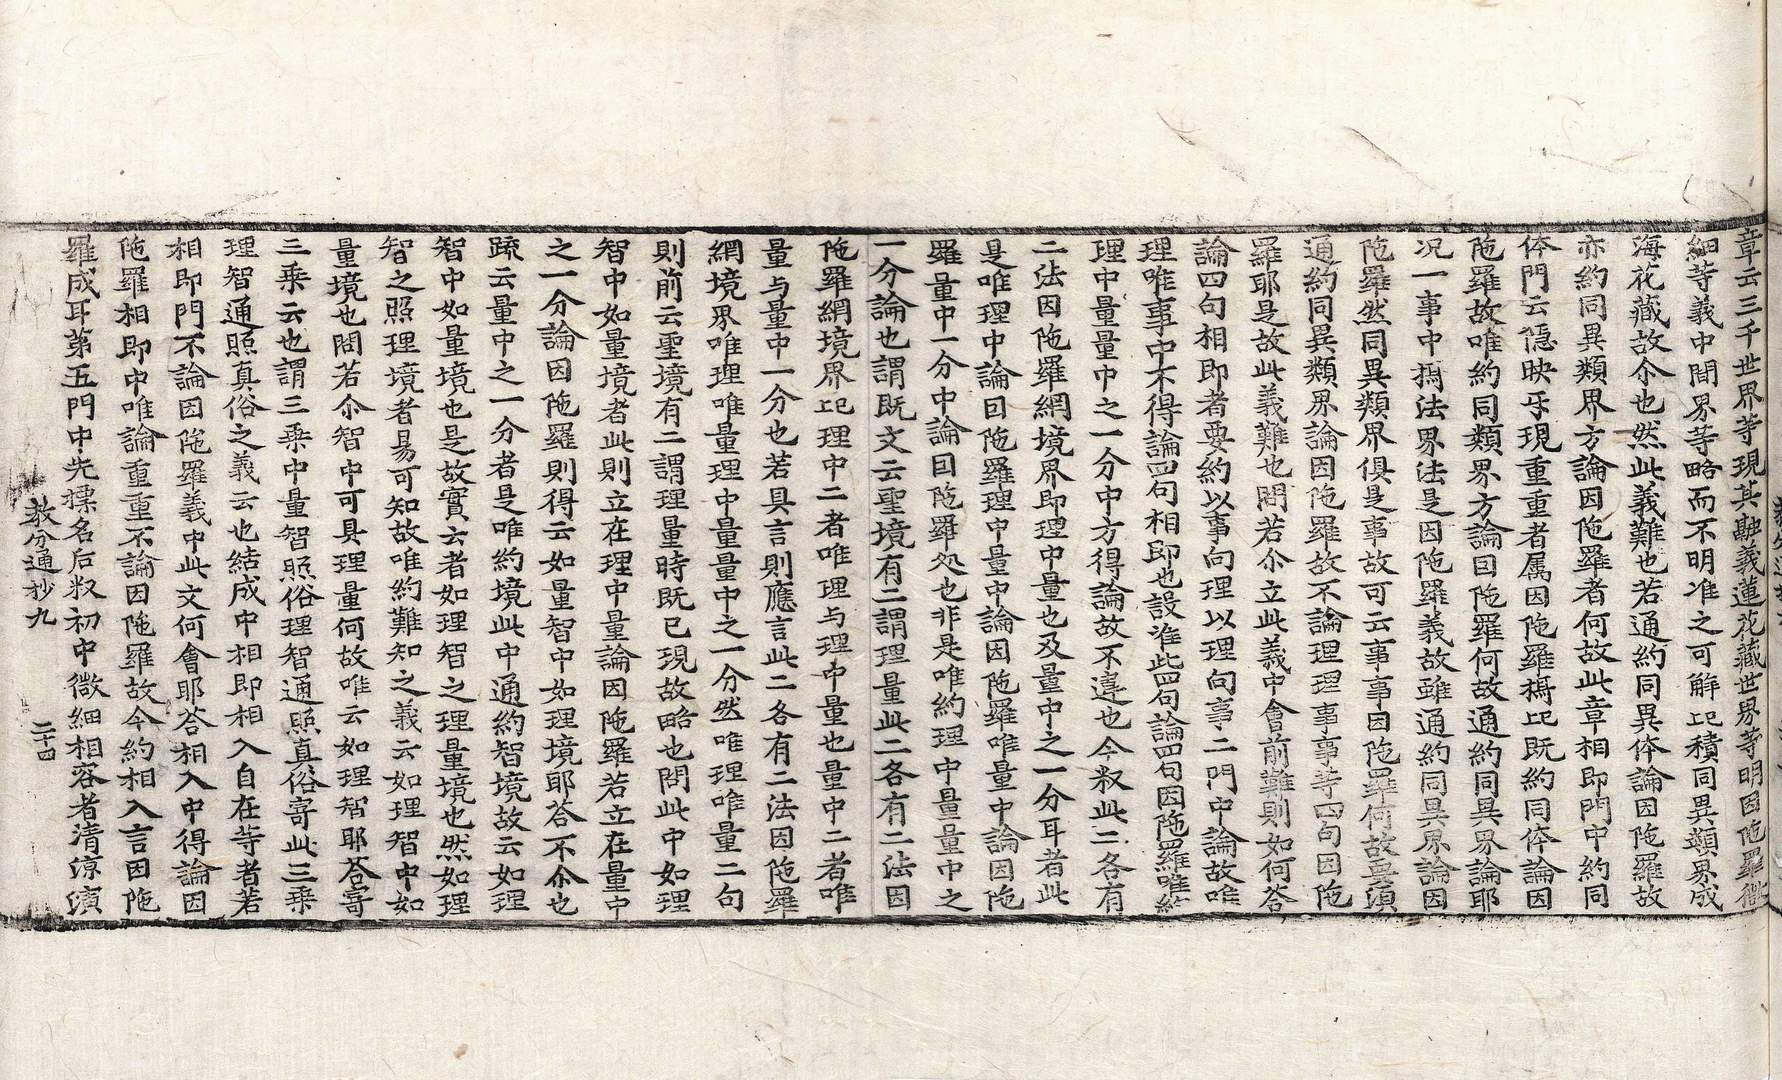 章云三千世界等現其融義蓮花藏世界等明因陁羅微
細等義中間界等略而不明准之可解㐃積同異類界成
海花藏故尒也然此義難也若通約同異体論因陁羅故
亦約同異類界方論因陁羅者何故此章相即門中約同
体門云隱映互現重重者属因陁羅搆㐃旣約同体論因
陁羅故唯約同類界方論因陁羅何故通約同異界論耶
况一事中搆法界法是因陁羅義故雖通約同異界論因
陁羅然同異類界俱是事故可云事事因陁羅何故與須
通約同異類界論因陁羅故不論理理事事等四句因陁
羅耶是故此義難也問若尒立此義中會前難則如何荅
論四句相即者要約以事向理以理向事二門中論故唯
理唯事中不得論四句相即也設准此四句論四句因陁羅唯約
理中量量中之一分中方得論故不違也今叙此二各有
二法因陁羅網境界即理中量也及量中之一分耳者此
是唯理中論因陁羅理中量中論因陁羅唯量中論因陁
羅量中一分中論因陁羅処也非是唯約理中量量中之
一分論也謂旣文云聖境有二謂理量此二各有二法因
陁羅網境界㐃理中二者唯理与理中量也量中二者唯
量与量中一分也若具言則應言此二各有二法因陁羅
網境界唯理唯量理中量量中之一分然唯理唯量二句
則前云聖境有二謂理量時旣已現故略也問此中如理
智中如量境者此則立在理中量論因陁羅若立在量中
之一分論因陁羅則得云如量智中如理境耶荅不尒也
疏云量中之一分者是唯約境此中通約智境故云如理
智中如量境也是故實云者如理智之理量境也然如理
智之照理境者易可知故唯約難知之義云如理智中如
量境也問若尒智中可具理量何故唯云如理智耶荅寄
三乘云也謂三乘中量智照俗理智通照真俗寄此三乘
理智通照真俗之義云也結成中相即相入自在等者若
相即門不論因陁羅義中此文何會耶荅相入中得論因
陁羅相即中唯論重重不論因陁羅故今約相入言因陁
羅成耳第五門中先摽名后叙初中微細相容者清涼演
教分通抄九 二十四